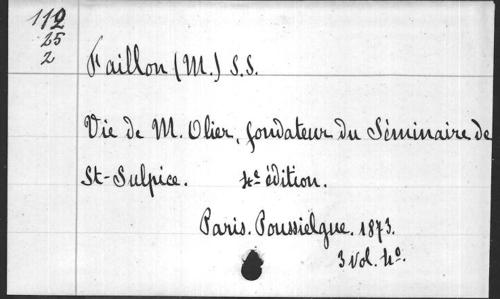 112
25
2
Faillon (M.) S.S.
Vie de M. Olier, fondateur du Séminaire de
St-Sulpice. 4e édition.
Paris. Poussielgue. 1873.
3 vol. 4o.